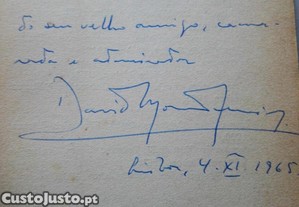 do seu velho amigo, cama-
rada e admirador
David Mourão-Ferreira
Lisboa, 4.XI.1965
CustoJusto.pt